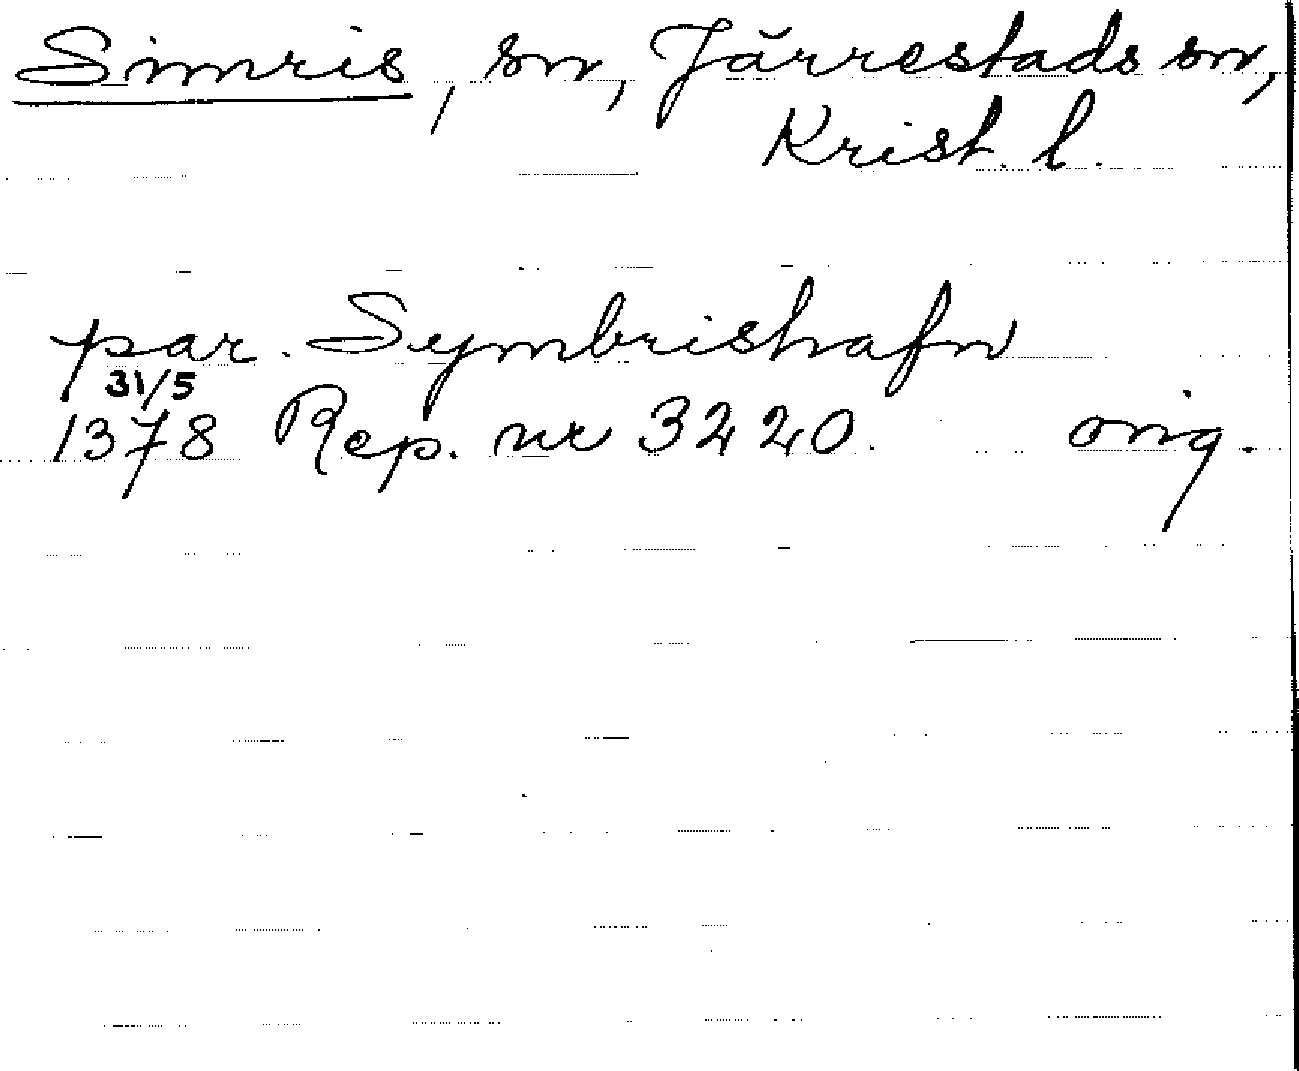 Simris, sn, Järrestads sn,
Krist. l.
par. Symbrishafn
31/5
1378 Rep. nr 3220. orig.